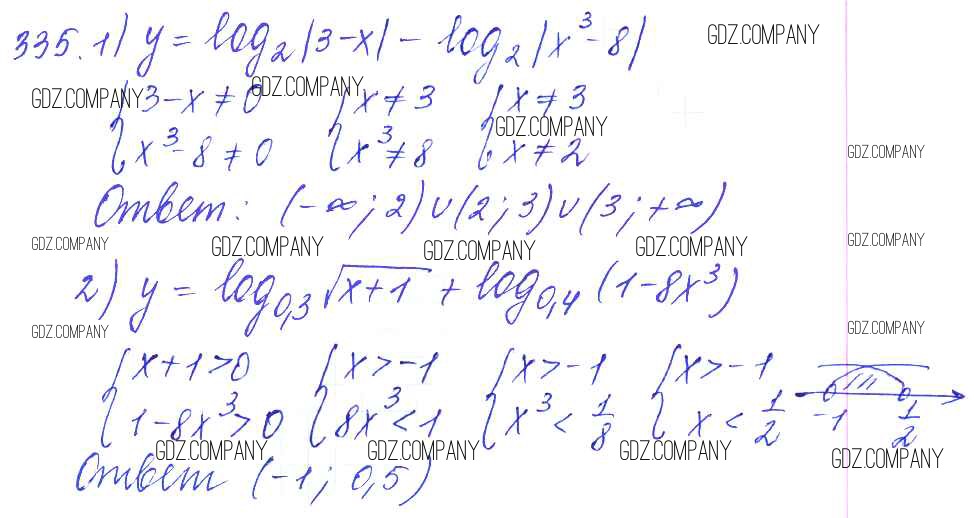 335. 1) y = log₂|3-x| - log₂|x³-8|
GDZ.COMPANY
GDZ.COMPANY GDZ.COMPANY
{3-x≠0 {x≠3 {x≠3
GDZ.COMPANY
{x³-8≠0 {x³≠8 {x≠2
GDZ.COMPANY
Ответ: (-∞; 2)∪(2; 3)∪(3; +∞)
GDZ.COMPANY GDZ.COMPANY GDZ.COMPANY GDZ.COMPANY GDZ.COMPANY
2) y = log₀,₃√x+1 + log₀,₄(1-8x³)
GDZ.COMPANY GDZ.COMPANY
{x+1>0 {x>-1 {x>-1 {x>-1
{1-8x³>0 {8x³<1 {x³<1/8 {x<1/2 -1 1/2
GDZ.COMPANY GDZ.COMPANY GDZ.COMPANY GDZ.COMPANY
Ответ (-1; 0,5)